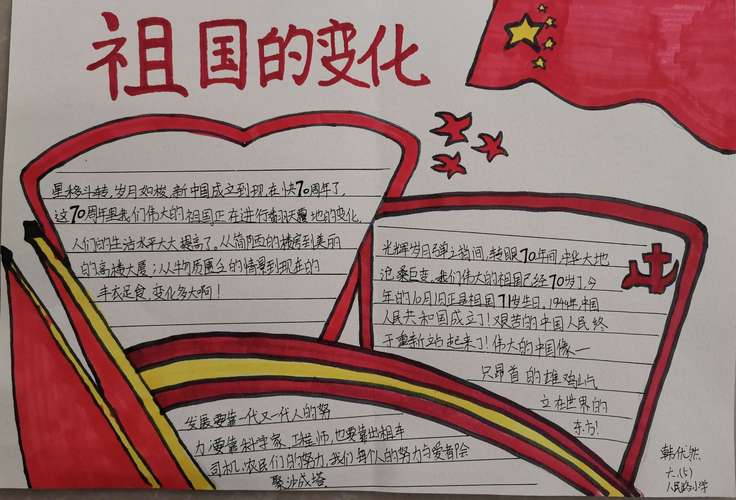 祖国的变化
星移斗转,岁月如梭,新中国成立到现在快70周年了,
这70周年里我们伟大的祖国正在进行着翻天覆地的变化,
人们的生活水平大大提高了。从简陋的楼房到美丽
的高楼大厦;从物质匮乏的情景到现在的
丰衣足食,变化多大啊!
光辉岁月弹之挢间,转眼70年间,中华大地
沧桑巨变。我们伟大的祖国已经70岁了,今
年的10月1日正是祖国71岁生日。1949年,中国
人民共和国成立了!艰苦的中国人民终
于重新站起来了!伟大的中国像一
只昂首的雄鸡屹
立在世界的
东方!
发展要靠一代又一代人的努
力,要靠科学家、工程师,也要靠出租车
司机、农民们的努力,我们每个人的努力与爱都会
聚沙成塔.
韩
六.(5)
人民路小学